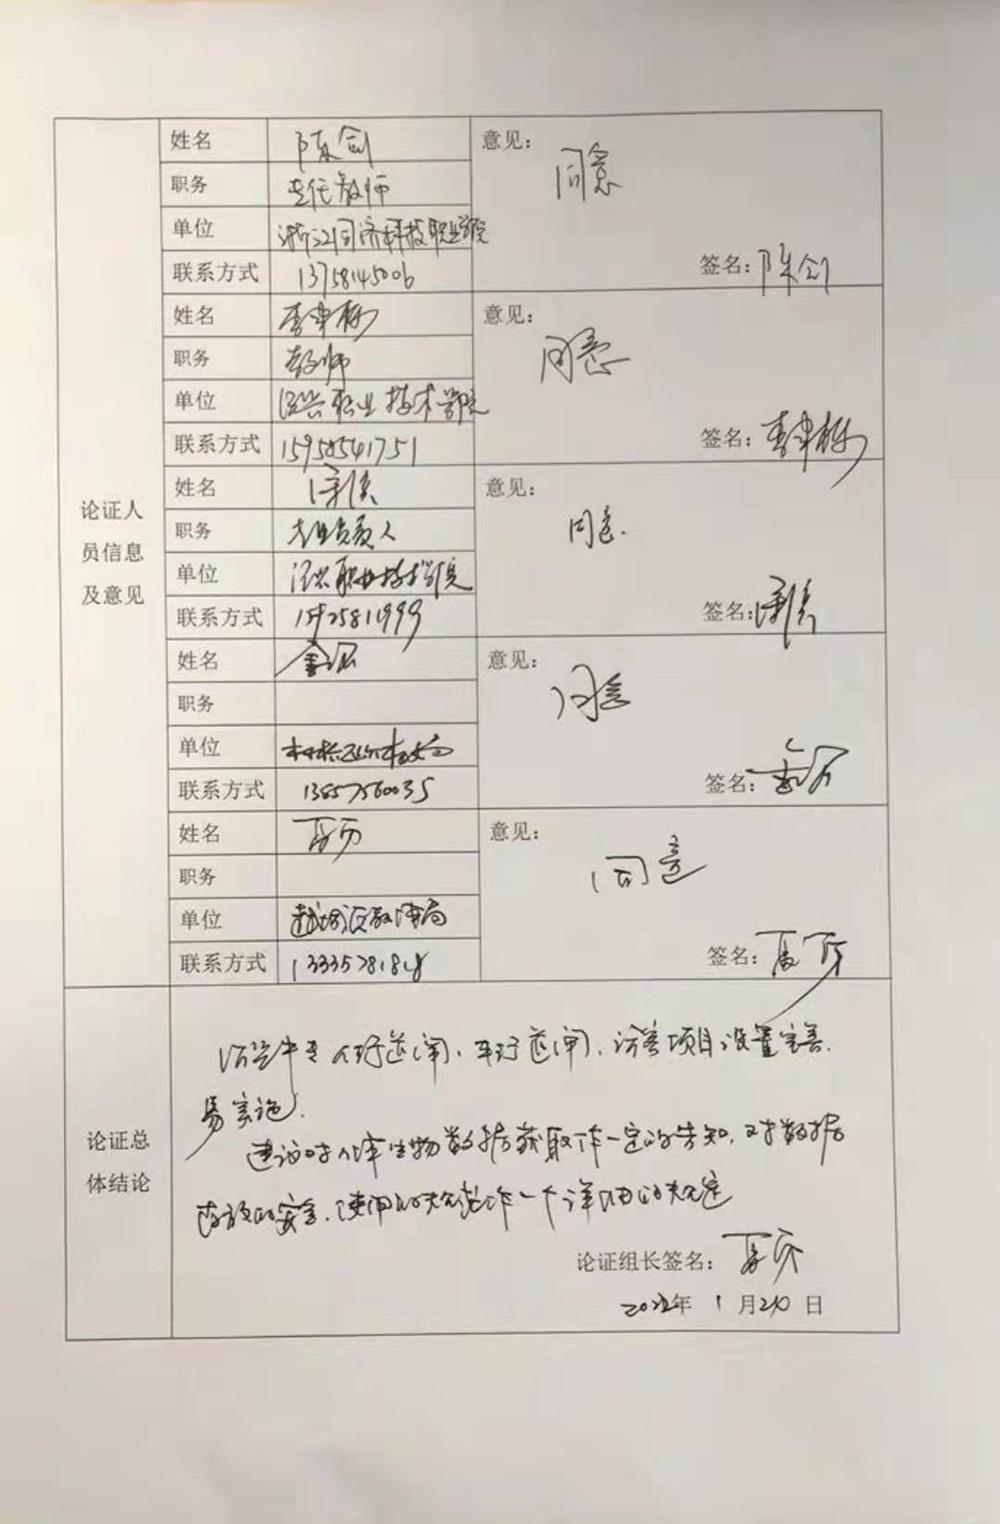 论证人员信息及意见
姓名 陈剑
职务 专任教师
单位 浙江同济科技职业学院
联系方式 13758145006
意见： 同意
签名： 陈剑
姓名 李
职务 教师
单位 绍兴职业技术学院
联系方式 15958541751
意见： 同意
签名： 李
姓名
职务 专业负责人
单位 绍兴职业技术学院
联系方式 15925811999
意见： 同意.
签名：
姓名 金
职务
单位
联系方式 13857560035
意见： 同意
签名： 金
姓名
职务
单位 越城区教体局
联系方式 13335781818
意见： 同意
签名：
论证总体结论
绍兴中专人行道闸、车行道闸、访客项目设置完善.
易实施.
建议对人体生物数据获取作一定的告知，对数据
存放的安全、使用的规范作一个详细的规定
论证组长签名：
2022年 1月20日